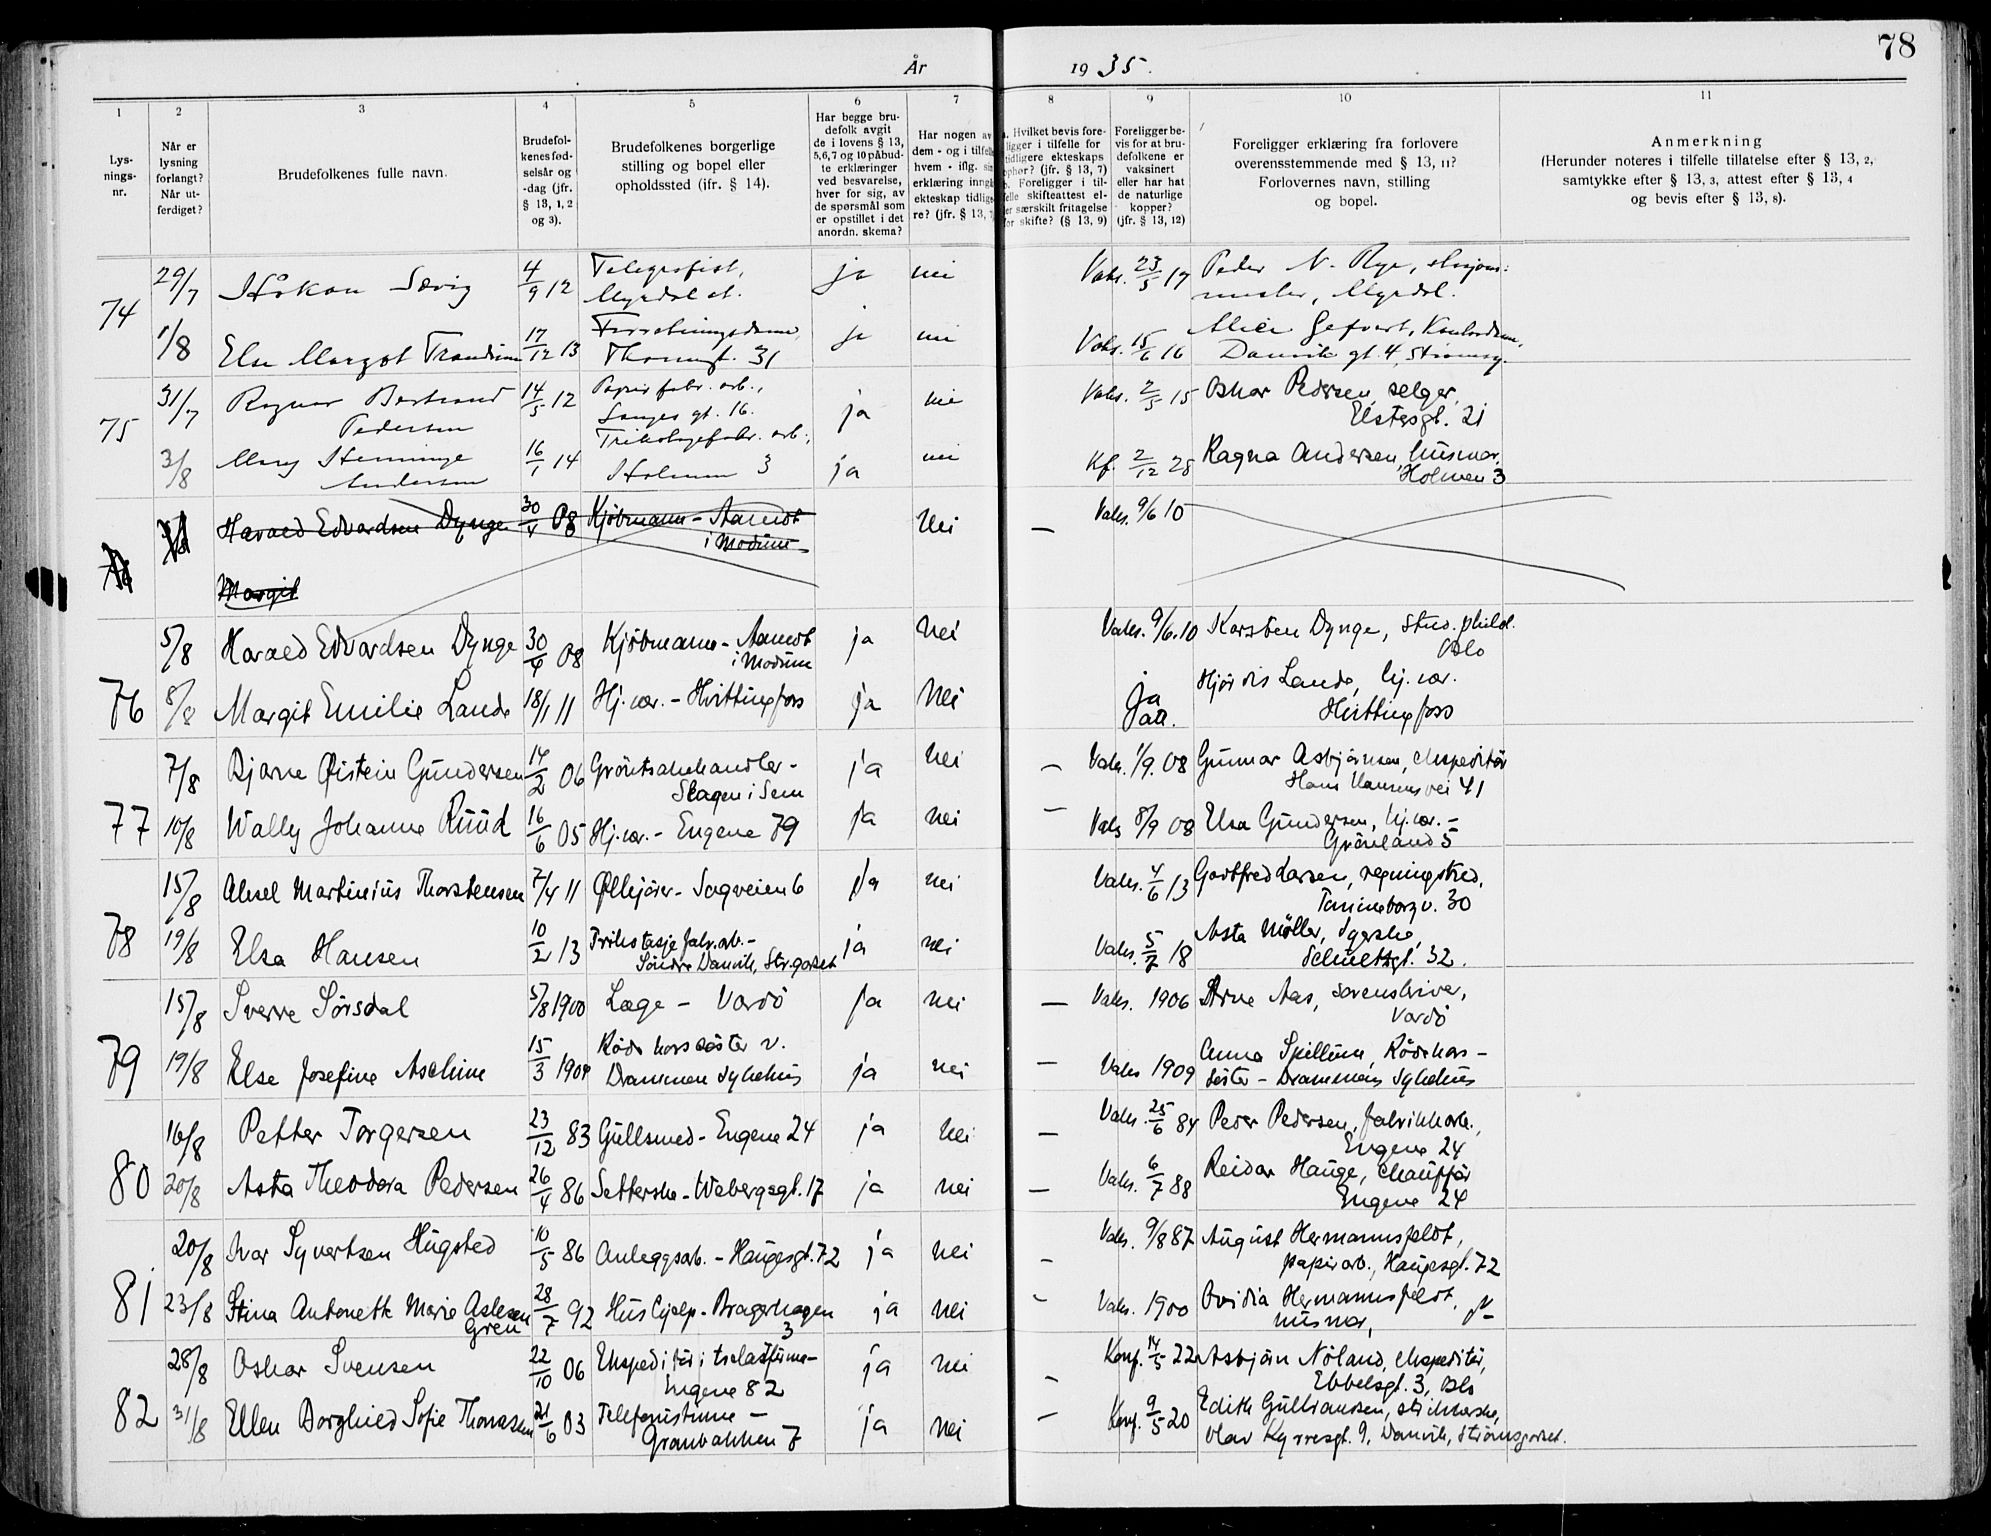 78
År 1935.
1 2 3 4 5 6 7 8 9 10 11
Lys-
nings-
nr.
Når er
lysning
forlangt?
Når ut-
ferdiget?
Brudefolkenes fulle navn.
Brudefol-
kenes fød-
selsår og
-dag (jfr.
§ 13, 1, 2
og 3).
Brudefolkenes borgerlige
stilling og bopel eller
opholdssted (ifr. § 14).
Har begge bru-
defolk avgit
de i lovens § 13,
5,6,7 og 10 påbud-
te erklæringer
ved besvarelse,
hver for sig, av
de spørsmål som
er opstillet i det
anordn. skema?
Har nogen av
dem - og i tilfelle
hvem - iflg. sin
erklæring inngå
ekteskap tidlige
re? (jfr. § 13, 7
a. Hvilket bevis fore-
ligger i tilfelle for
tidligere ekteskaps
ophør? (jfr. § 13, 7)
b. Foreligger i til-
felle skifteattest el-
ler særskilt fritagelse
for skifte? (§ 13, 9)
Foreligger be-
vis for at bru-
defolkene er
vaksinert
eller har hat
de naturlige
kopper?
(jfr. § 13, 12)
Foreligger erklæring fra forlovere
overensstemmende med § 13, 11?
Forlovernes navn, stilling
og bopel.
Anmerkning
(Herunder noteres i tilfelle tillatelse efter § 13, 2,
samtykke efter § 13, 3, attest efter § 13, 4
og bevis efter § 13, 8).
74 29/7 Håkon Sævig 4/9 12 Telegrafist, ja nei Vaks. 23/5 17 Peder N. Rye, stasjons:
Myrdal st. mester, Myrdal.
1/8 Else Margot Trandum 17/12 13 Forretningsdame, ja nei Vaks. 15/6 16 Alice Gefvert, Kontordam,
31 Danvik gt. 4, Strømsg.
75 31/7 Ragnar Bertrand 14/5 12 Papirfabr. arb., ja nei Vaks. 2/5 15 Oskar Pedersen, selger,
Pedersen Langes gt. 16. Elstersgt. 21
3/8 Mary Henninge 16/1 14 Trikotagefabr. arb., ja nei Kf. 2/12 28 Ragna Andersen, husmor,
Andersen Holmen 3 Holmen 3
Harald Edvardsen Dynge 30/4 08 Kjøbmann - Aamot nei — Vaks. 9/6 10
i Modum
Margit
76 5/8 Harald Edvardsen Dynge 30/4 08 Kjøbmann - Aamot ja nei Vaks. 9/6.10 Karsten Dynge, Stud. philol.
i Modum Oslo
8/8 Margit Emilie Lande 18/1 11 Hj.vær. - Hvittingfoss ja nei ja Hjørdis Lande, hj.vær.
att. Hvittingfoss
77 7/8 Bjarne Øistein Gundersen 14/2 06 Grøntsakhandler - ja nei — Vaks. 1/9.08 Gunnar Asbjørnsen, ekspeditør
Skagen i Sem Hans Hansens vei 41
10/8 Wally Johanne Ruud 16/6 05 Hj.vær. - Engene 79 ja nei — Vaks 8/9 08 Elsa Gundersen, hj.vær. -
Grönland 5
78 15/8 Aksel Martinius Thorstensen 7/4 11 Ølkjører - Sagveien 6 ja nei Vaks. 4/6 13 Gottfred Larsen, regningskred.
Tømmeborgv. 30
19/8 Elsa Hansen 10/2 13 Trikotasje fabr.arb. - ja nei Vaks. 5/7 18 Asta Møller, Syerske,
Søndre Danvik, Str.godset Schultzgt. 32.
79 15/8 Sverre Sørsdal 5/8 1900 Læge - Vardö ja nei — Vaks. 1906 Arne Aas, sorenskriver,
Vardö
19/8 Else Josefine Aschim 15/3 1909 Rødekorssöster v. ja nei — Vaks 1909 Anna Spillum, Rödekors -
Drammen sykehus söster - Drammens sykehus
80 16/8 Petter Torgersen 23/12 83 Gullsmed - Engene 24 ja nei — Vaks. 25/6 84 Peder Pedersen, fabrikkarb.,
Engene 24
20/8 Asta Theodora Pedersen 26/4 86 Setterske - Webergsgt. 17 ja nei — Vaks. 6/7 88 Reidar Hauge, chauffør
Engene 24
81 20/8 Ivar Syvertsen Hugsted 10/5 86 Anleggsarb. - Haugesgt. 72 ja nei — Vaks. 9/8 87 August Hermannsfeldt,
papirarb., Haugesgt. 72
23/8 Stina Antonette Marie Aslesen 28/7 92 Hushjelp - Bragerhagen ja nei - Vaks. 1900 Ovidia Hermannsfeldt,
Gren 3 husmor,
82 28/8 Oskar Svensen 22/10 06 Ekspeditør i ja nei — Konf. 14/5 22 Asbjørn Nöland, ekspeditør,
Engene 82 Ebbelsgt. 3, Oslo
31/8 Ellen Borghild Sofie Thomassen 21/6 03 Telefonistinne - ja nei — Konf. 9/5 20 Edith Gulbrandsen, strikkerske,
Granbakken 7 Olav Kyrresgt. 9, Danvik, Strömsgodset.